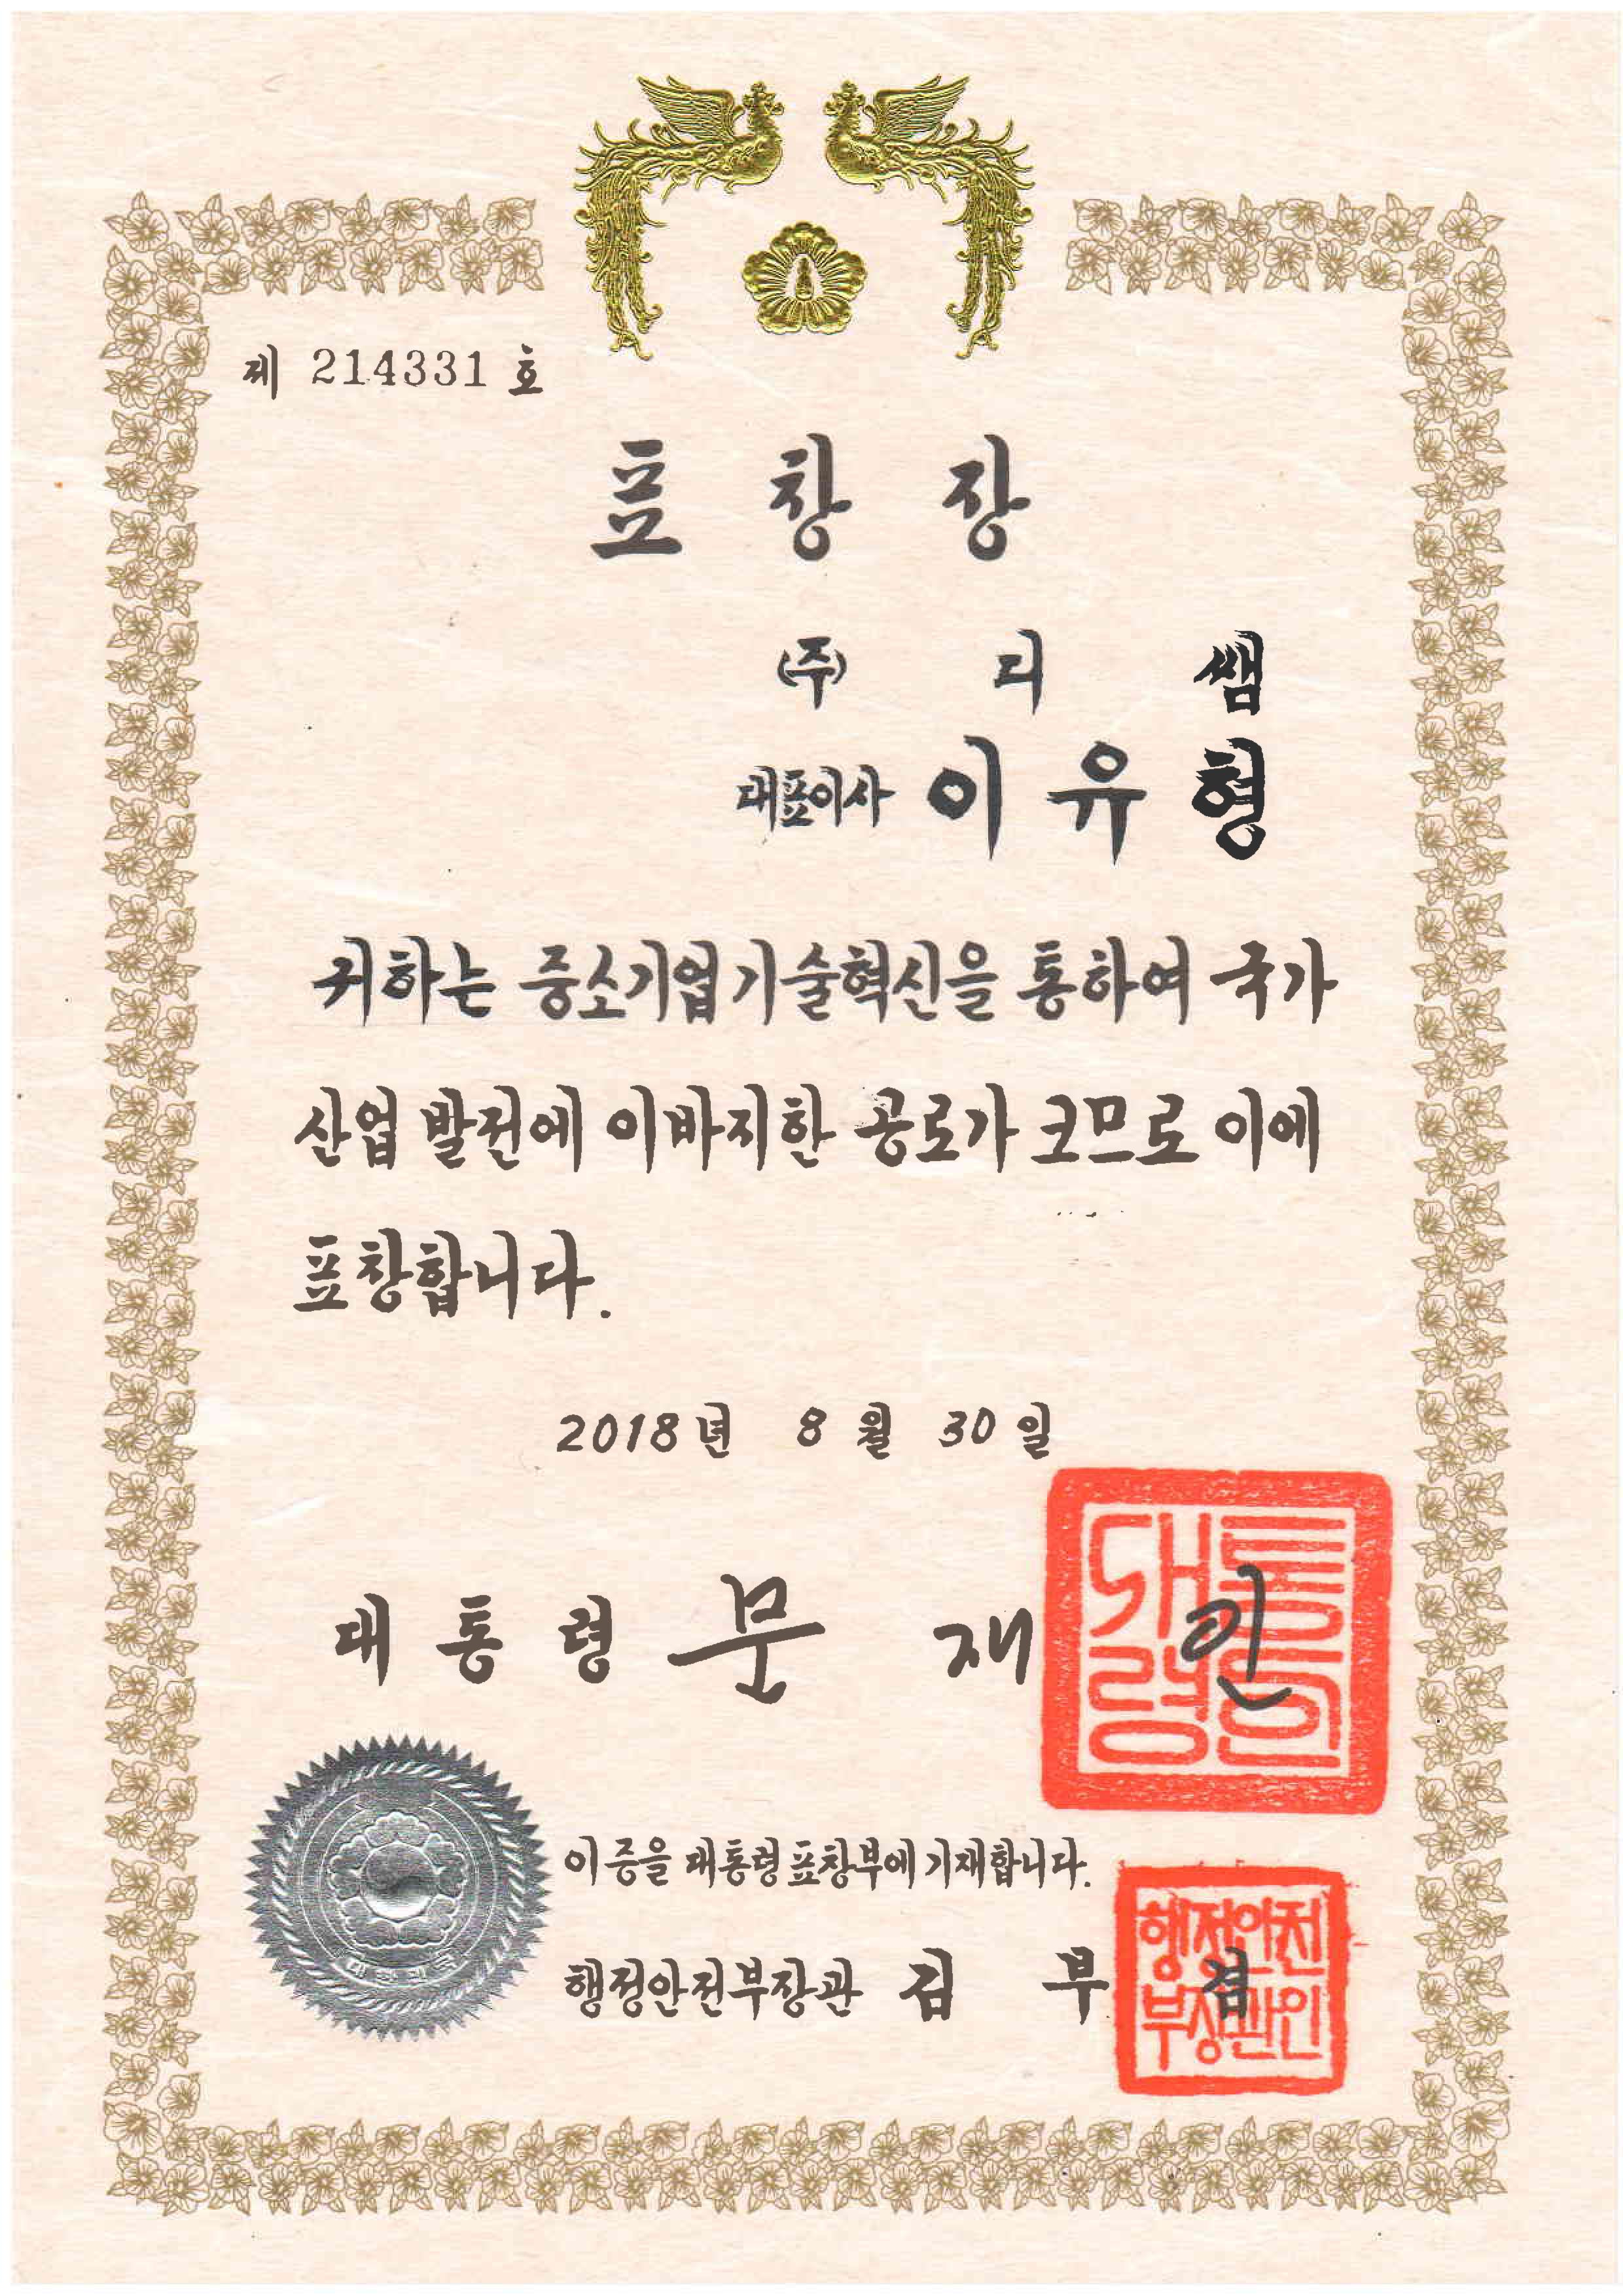 제 214331 호
표 창 장
(주) 디 쌤
대표이사 이 유 형
귀하는 중소기업기술혁신을 통하여 국가
산업 발전에 이바지한 공로가 크므로 이에
표창합니다.
2018년 8월 30일
대 통 령 문 재 인
대통령의인
이 증을 대통령표창부에 기재합니다.
행정안전부장관 김 부 겸
행정안전
부장관인
대한민국